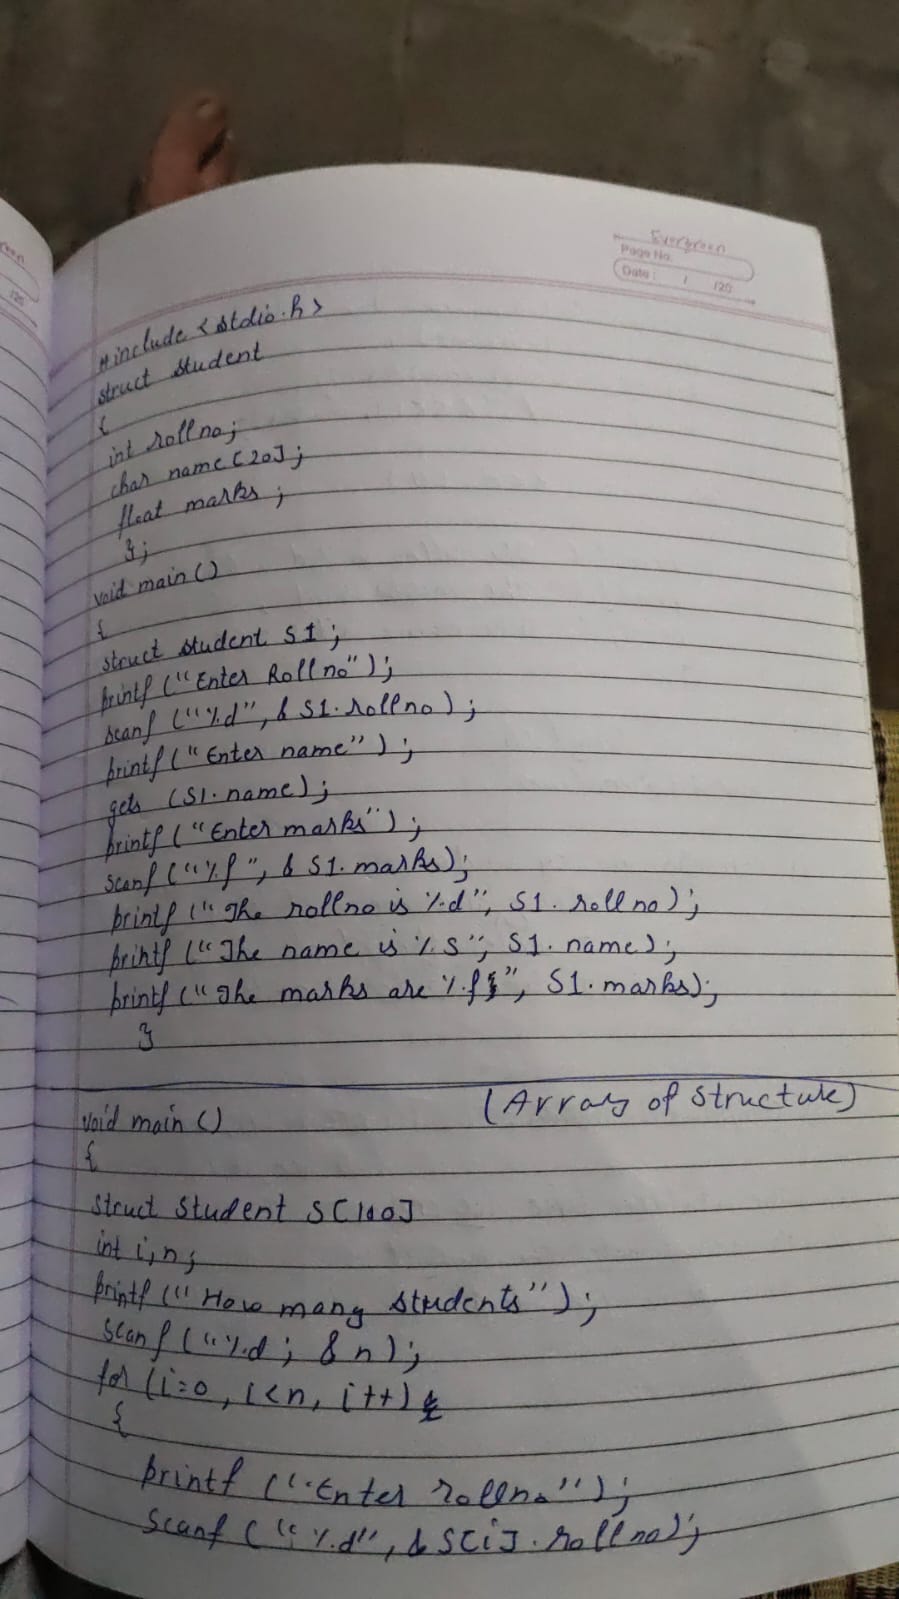 Evergreen
Page No.
Date : / /20
#include <stdio.h>
struct student
{
int rollno;
char name[20];
float marks;
};
void main()
{
struct student S1;
printf ("Enter Rollno");
scanf ("%d", & S1.rollno);
printf ("Enter name");
gets (S1.name);
printf ("Enter marks");
scanf ("%f", & S1.marks);
printf ("The rollno is %d", S1.rollno);
printf ("The name is %s", S1.name);
printf ("The marks are %f", S1.marks);
}
(Array of Structure)
void main ()
{
struct Student S[100]
int i,n;
printf ("How many students");
scanf ("%d ; &n);
for (i=0, i<n, i++)
{
printf ("Enter rollno");
scanf ("%d", & S[i].rollno);